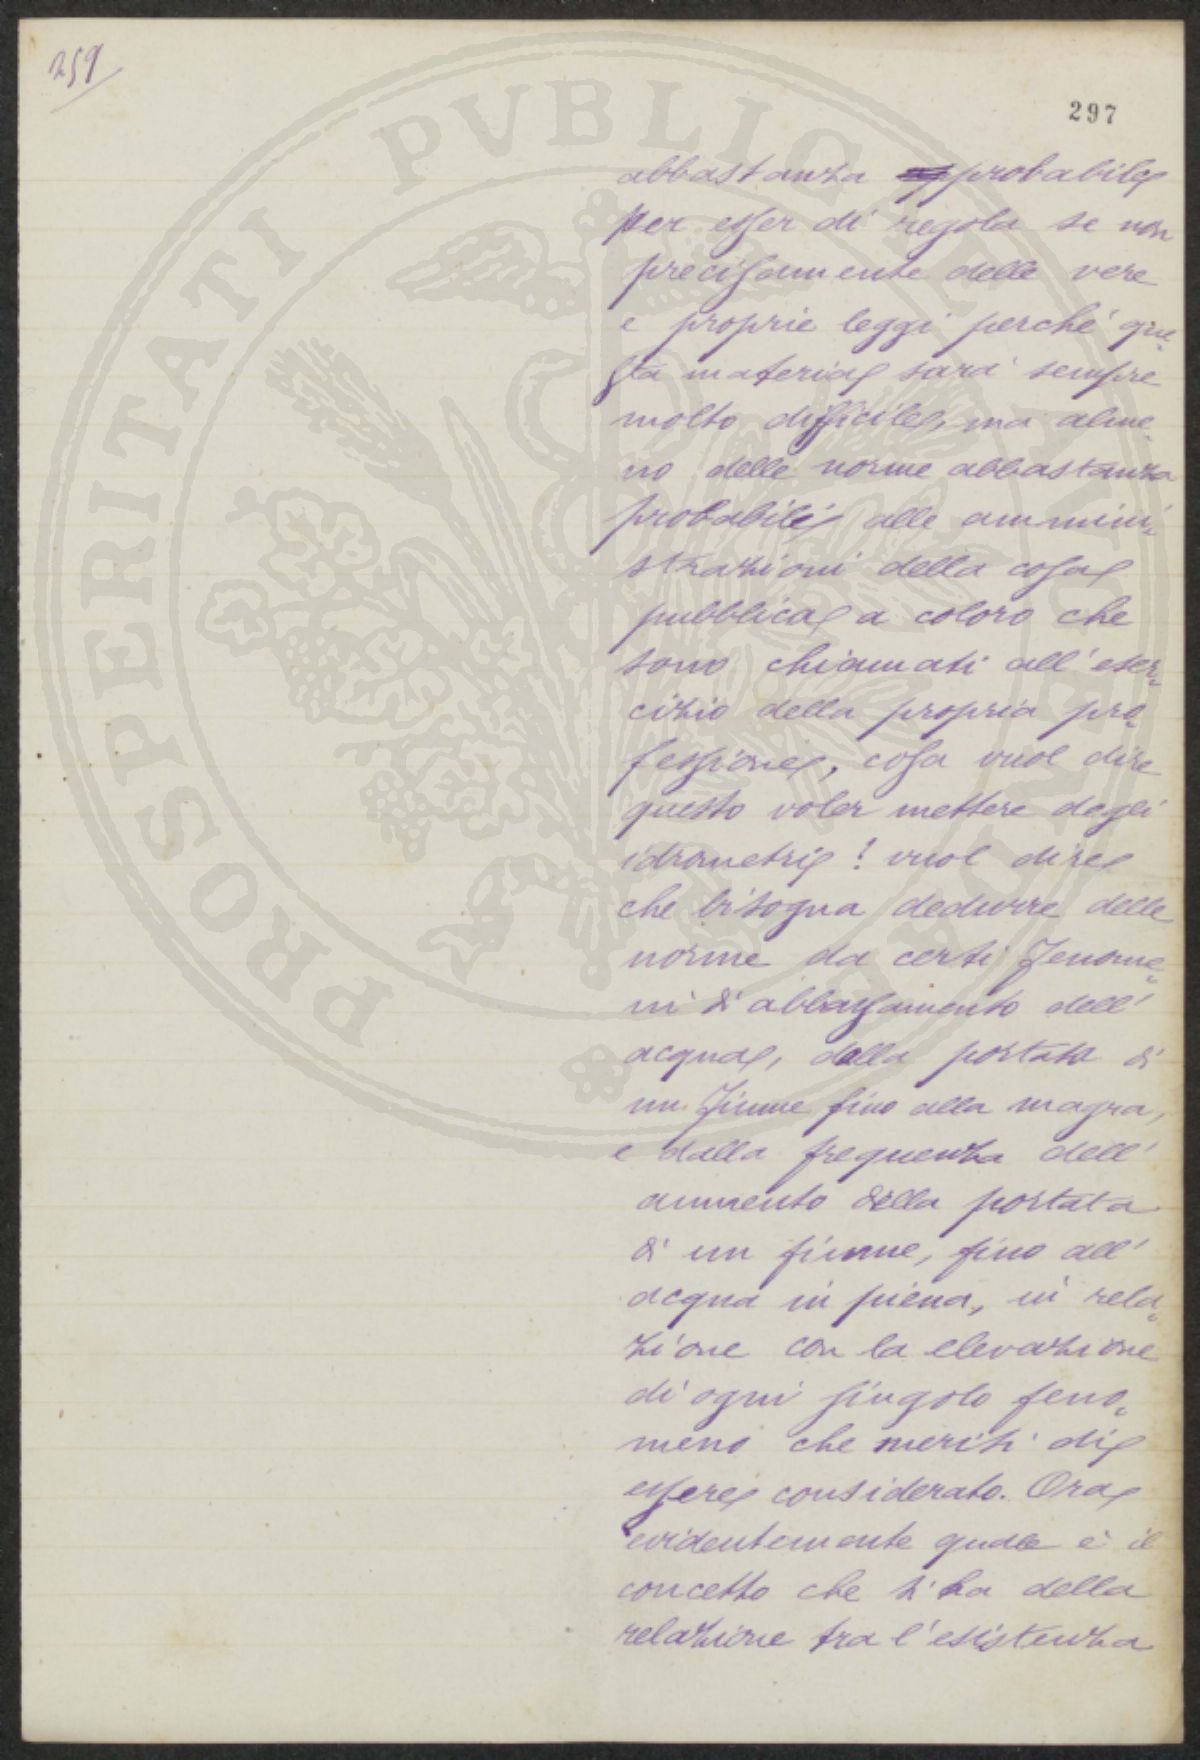 259
297
PROSPERITATI PUBLICAE
abbastanza probabile
per esser di regola se non
precisamente delle vere
e proprie leggi perché que=
sta materia sarà sempre
molto difficile, ma alme=
no delle norme abbastanza
probabili alle ammini=
strazioni della cosa
pubblica a coloro che
sono chiamati all'eser=
cizio della propria pro=
fessione, cosa vuol dire
questo voler mettere degli
idrometri? vuol dire
che bisogna dedurre delle
norme da certi fenome=
ni di abbassamento dell'
acqua, dalla portata di
un fiume fino alla magra,
e dalla frequenza dell'
aumento della portata
di un fiume, fino all'
acqua in piena, in rela=
zione con la elevazione
di ogni singolo feno=
meno che meriti di
essere considerato. Ora
evidentemente quale è il
concetto che si ha della
relazione tra l'esistenza